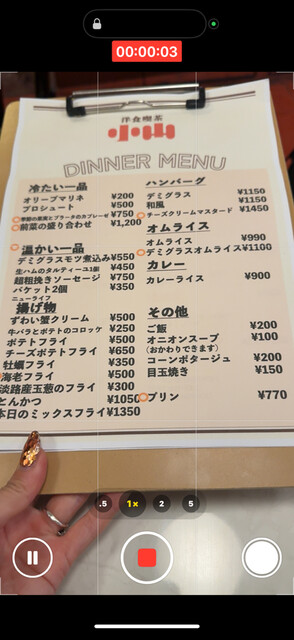 00:00:03
洋食喫茶
DINNER MENU
冷たい一品
オリーブマリネ ¥200
プロシュート ¥500
季節の果実とブラータのカプレーゼ ¥750
前菜の盛り合わせ ¥1,200
温かい一品
デミグラスモツ煮込み ¥550
生ハムのタルティーユ1個 ¥450
超粗挽きソーセージ ¥750
バケット2個 ¥350
ニューライフ
揚げ物
ずわい蟹クリーム ¥500
牛バラとポテトのコロッケ ¥250
ポテトフライ ¥500
チーズポテトフライ ¥650
牡蠣フライ ¥350
海老フライ ¥500
淡路産玉葱のフライ ¥300
とんかつ ¥1050
本日のミックスフライ ¥1350
ハンバーグ
デミグラス ¥1150
和風 ¥1150
チーズクリームマスタード ¥1450
オムライス
オムライス ¥990
デミグラスオムライス ¥1100
カレー
カレーライス ¥900
その他
ご飯 ¥200
オニオンスープ ¥100
(おかわりできます)
コーンポタージュ ¥200
目玉焼き ¥150
プリン ¥770
.5 1× 2 5